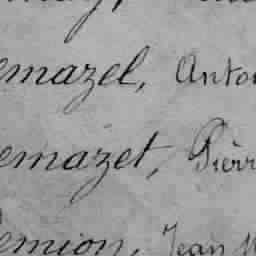 emazel, Anto
emazet, Pierr
emion, Jean